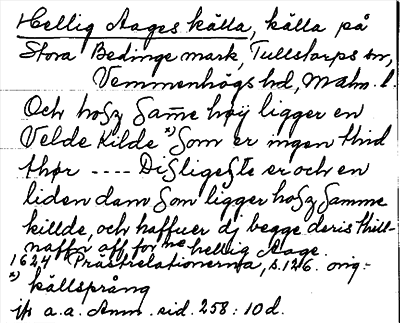 Hellig Aages källa, källa på
Stora Bedinge mark, Tullstorps sn,
Vemmenhögs hd, Malm. l.
Och hosz samme höÿ ligger en
Velde Kilde x) som er ingen thid
thør ---- Disligeste er och en
liden dam som ligger hosz samme
killde, och haffuer dj begge deris thill-
naffn aff forne hellig Aage.
1624 Prästrelationerna, s. 126. orig:
x) källsprång
jfr a.a. Anm. sid. 258: 10 d.